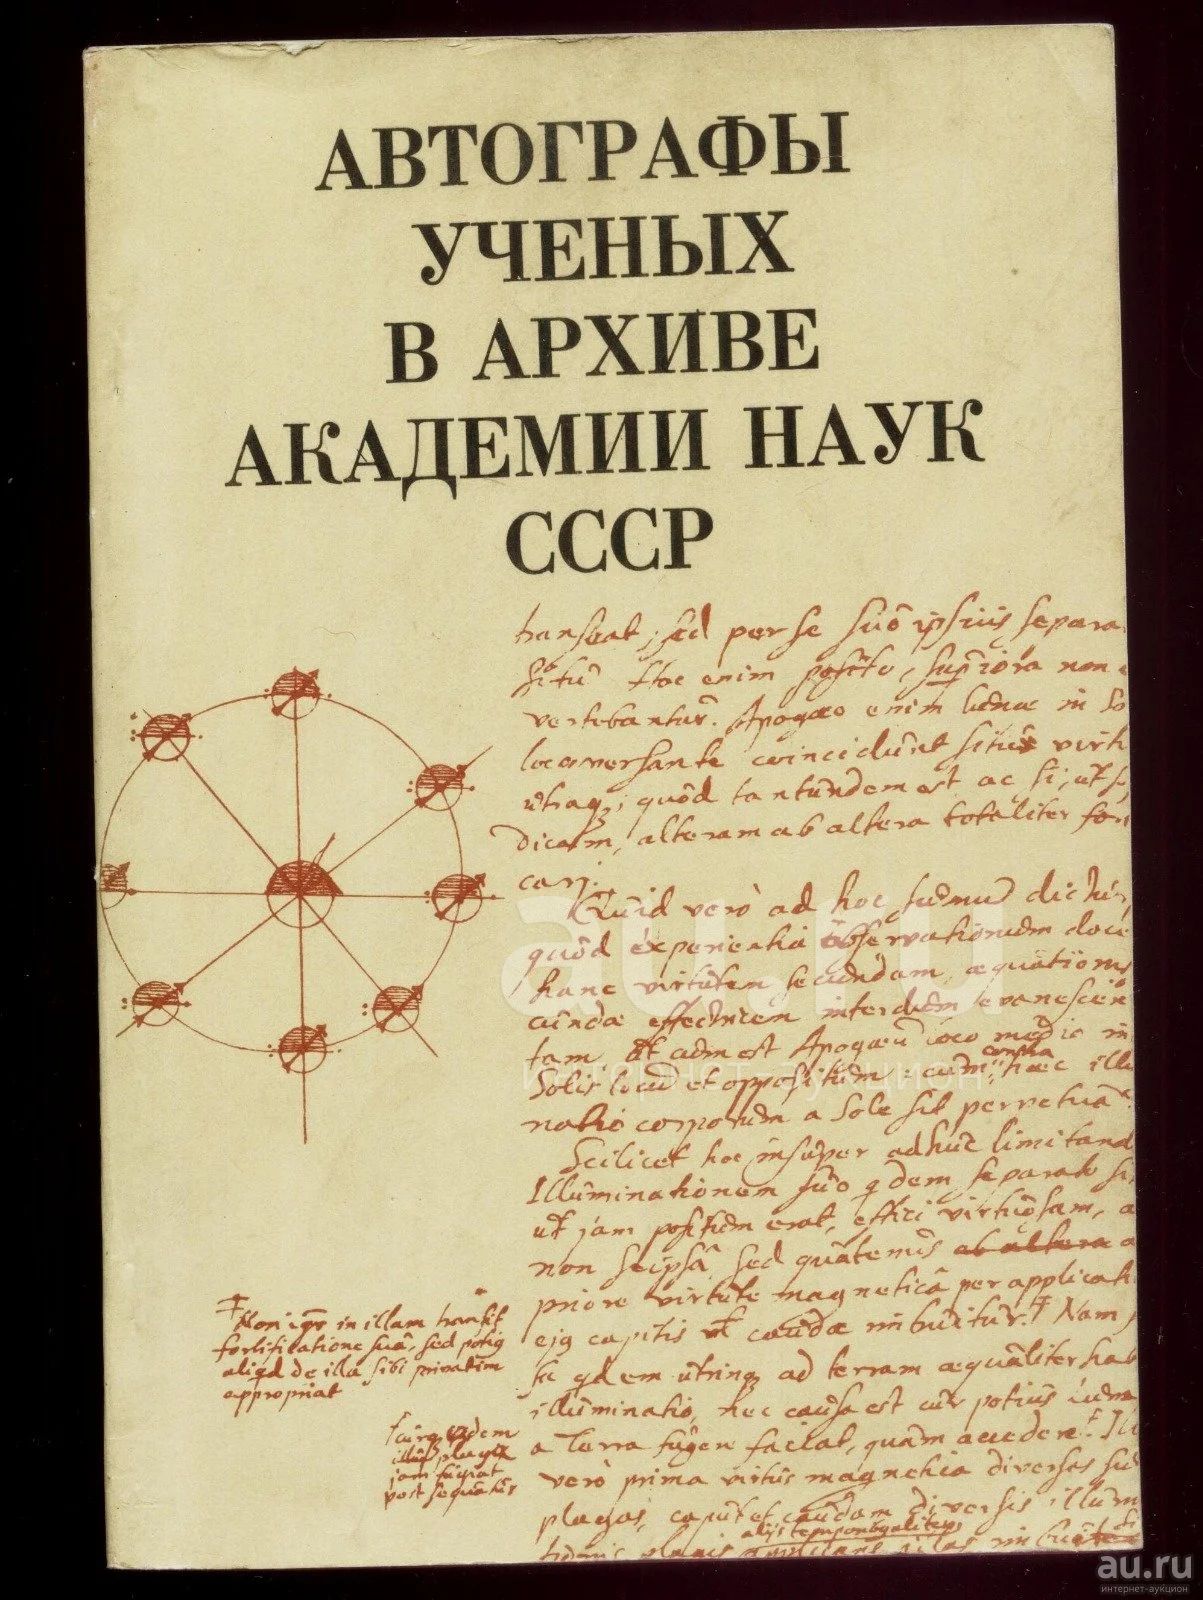 АВТОГРАФЫ
УЧЕНЫХ
В АРХИВЕ
АКАДЕМИИ НАУК
СССР
transeat, sed per se suo ipsius separa
situ Hoc enim posito, superiora non
vertebantur. Apogaeo enim lunae in So
loco versante coincidunt situs virtu
utraq; quod tantundem est ac si, ut
dicam, alteram ab altera totaliter for
cari.
Quid vero ad hoc summu dictu
quod experientia observationum doce
hanc virtutem secundam, aequationis
cundae effectricem interdum evanescen
tam ut cum est Apogaeu loco medio in
Solis locu et oppositum: cum contra haec illu
natio corporum a Sole sit perpetua
Scilicet hoc insuper adhuc limitand
Illuminationem suo qdem separato si
ut jam positum erat, effici virtuosam, a
non seipsa sed quatenus ab altera a
priore virtute magnetica per applicati
ejq capitis ut caudae imbuitur. Nam
sic qdem utrinq ad terram aequaliter hab
illuminatio, nec causa est cur potius
a Terra fugen faciat, quam accedere.
vero prima virtus magnetica diversas
plagas, caput et caudam diversis illum
Non in illam transit
fortificatione sua, sed potiq
aliqd de illa sibi privatim
appropriat
jam fugiat
post sequatur
au.ru
интернет-аукцион
au.ru
интернет-аукцион